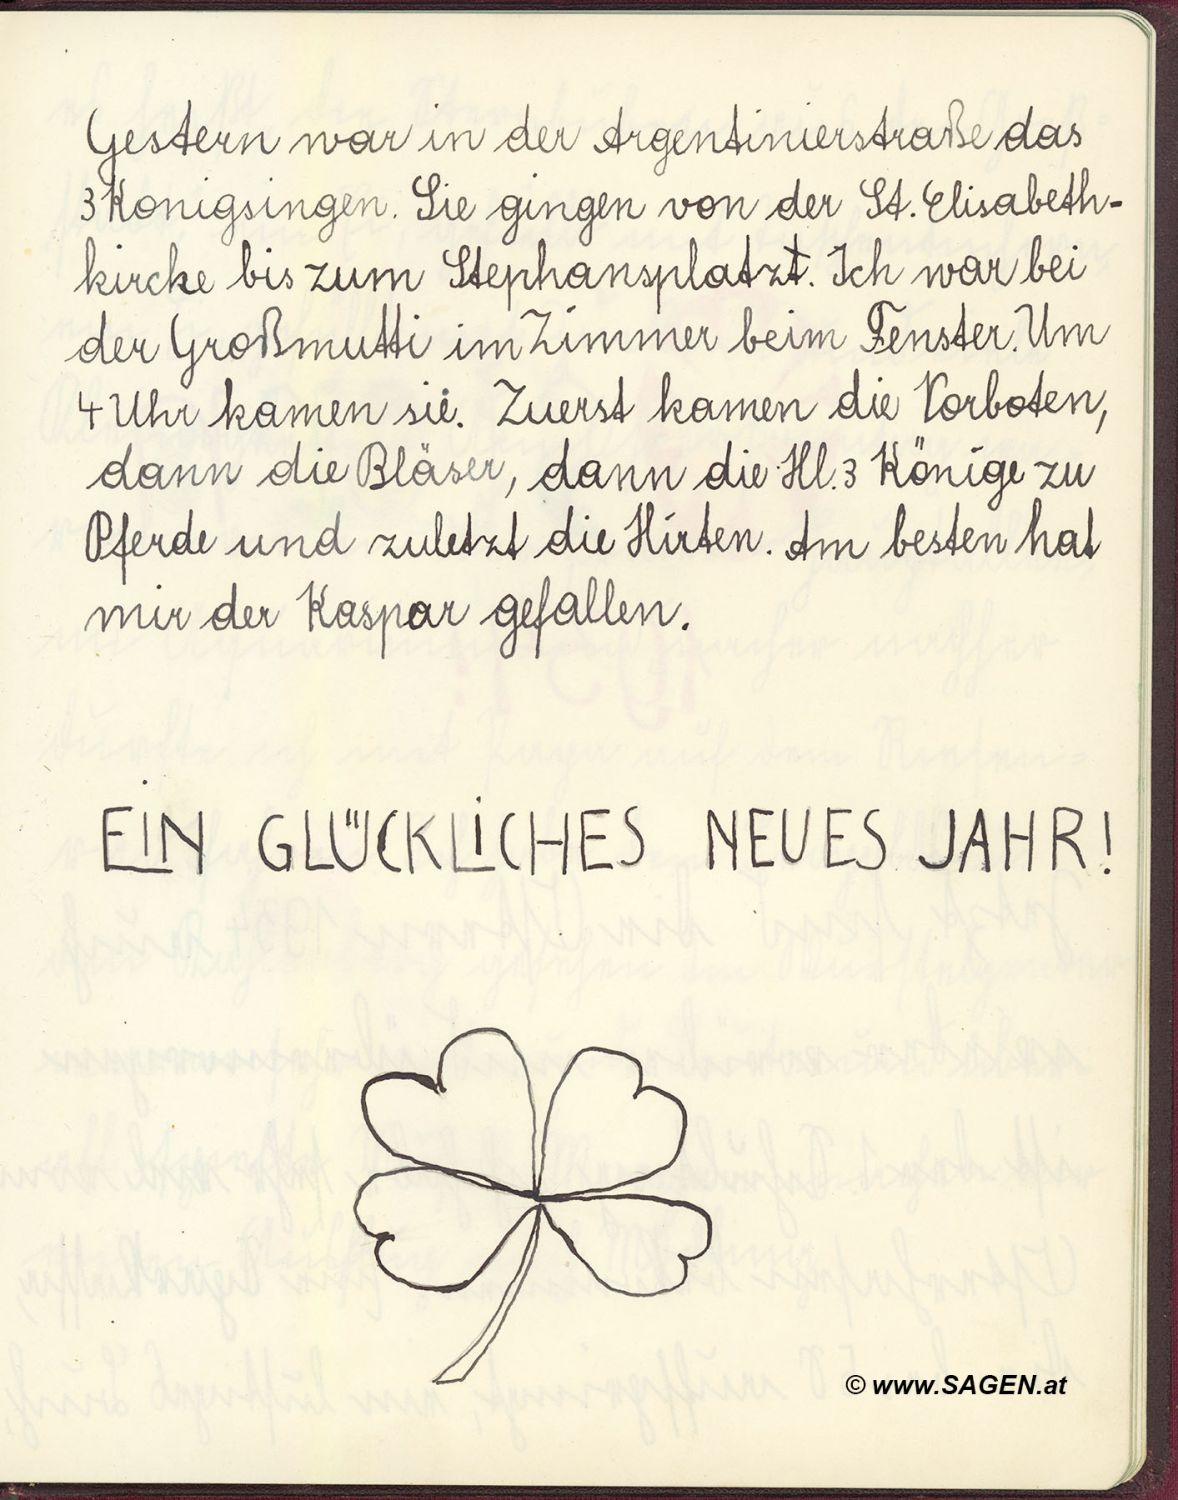 Gestern war in der Argentinierstraße das
3 Königsingen. Sie gingen von der St. Elisabeth-
kircke bis zum Stephansplatzt. Ich war bei
der Großmutti im Zimmer beim Fenster. Um
4 Uhr kamen sie. Zuerst kamen die Vorboten,
dann die Bläser, dann die Hl. 3 Könige zu
Pferde und zuletzt die Hirten. Am besten hat
mir der Kaspar gefallen.
EIN GLÜCKLICHES NEUES JAHR!
© www.SAGEN.at